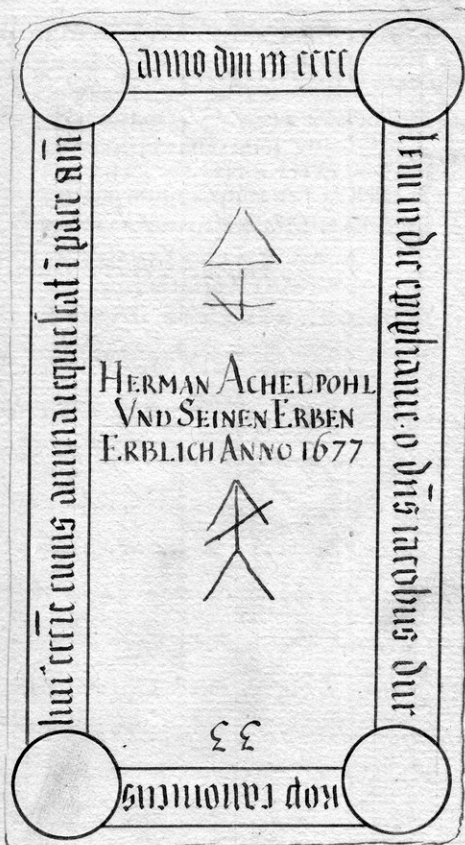 anno dm m cccc
in die epiphanie·o dn̄s iacobus dur
kop canonicus
hui' eccl̄ie cuius anima requiescat ī pace am̄
HERMAN ACHELPOHL
VND SEINEN ERBEN
ERBLICH ANNO 1677
33